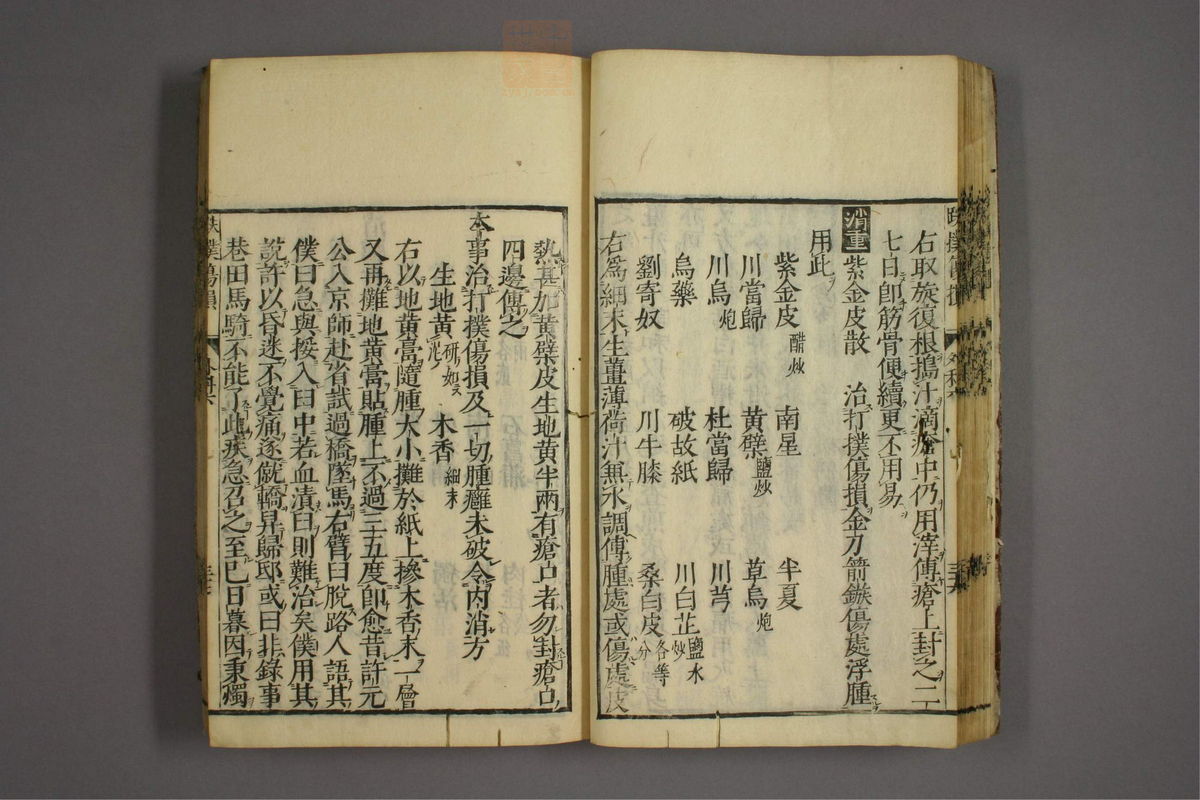 右取旋復根搗汁滴瘡中仍用滓傅瘡上封之二
七日即筋骨便續更不用易
消腫 紫金皮散 治打撲傷損金刀箭鏃傷處浮腫
用此
紫金皮醋炒 南星 半夏
川當歸 黃蘗鹽炒 草烏炮
川烏炮 杜當歸 川芎
烏藥 破故紙 川白芷鹽水炒
劉寄奴 川牛膝 桑白皮各等分
右為細末生薑薄荷汁無水調傅腫處或傷處皮
熱甚加黃蘗皮生地黃半兩有瘡口者勿封瘡口
四邊傅之
本事治打撲傷損及一切腫癰未破令內消方
生地黃研如泥 木香細末
右以地黃膏隨腫大小攤於紙上摻木香末一層
又再攤地黃膏貼腫上不過三五度即愈昔許元
公入京師赴省試過橋墜馬右臂臼脫路人語其
僕曰急與挼入臼中若血漬臼則難治矣僕用其
說許以昏迷不覺痛遂僦轎舁歸邸或曰非錄事
巷田馬騎不能了此疾急召之至已日暮因秉燭